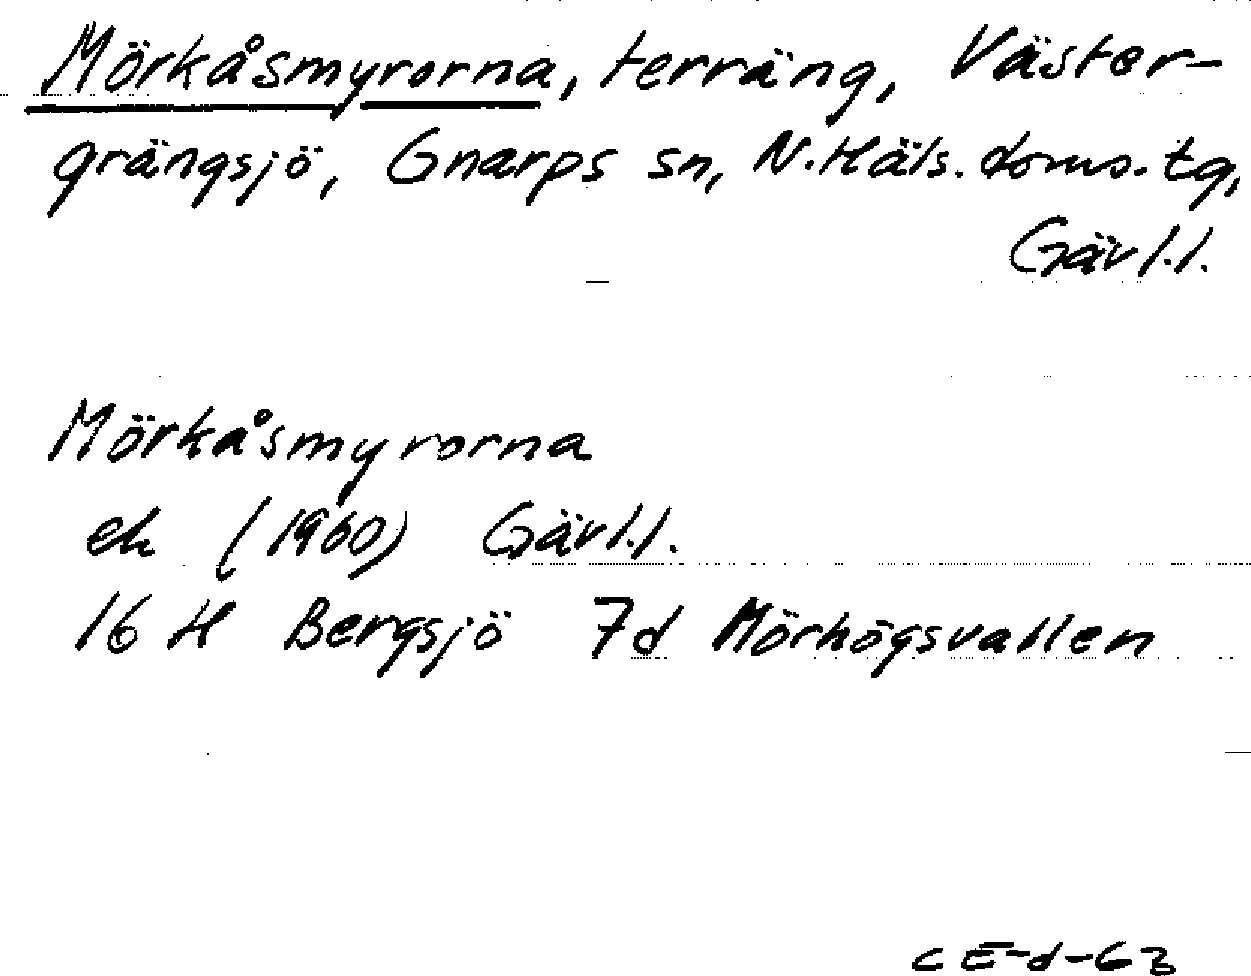 Mörkåsmyrorna, terräng, Väster-
grängsjö, Gnarps sn, N. Häls. doms. tg,
Gävl.l.
Mörkåsmyrorna
ek (1960) Gävl.l.
16 H Bergsjö 7d Mörhögsvallen
CE-d-63